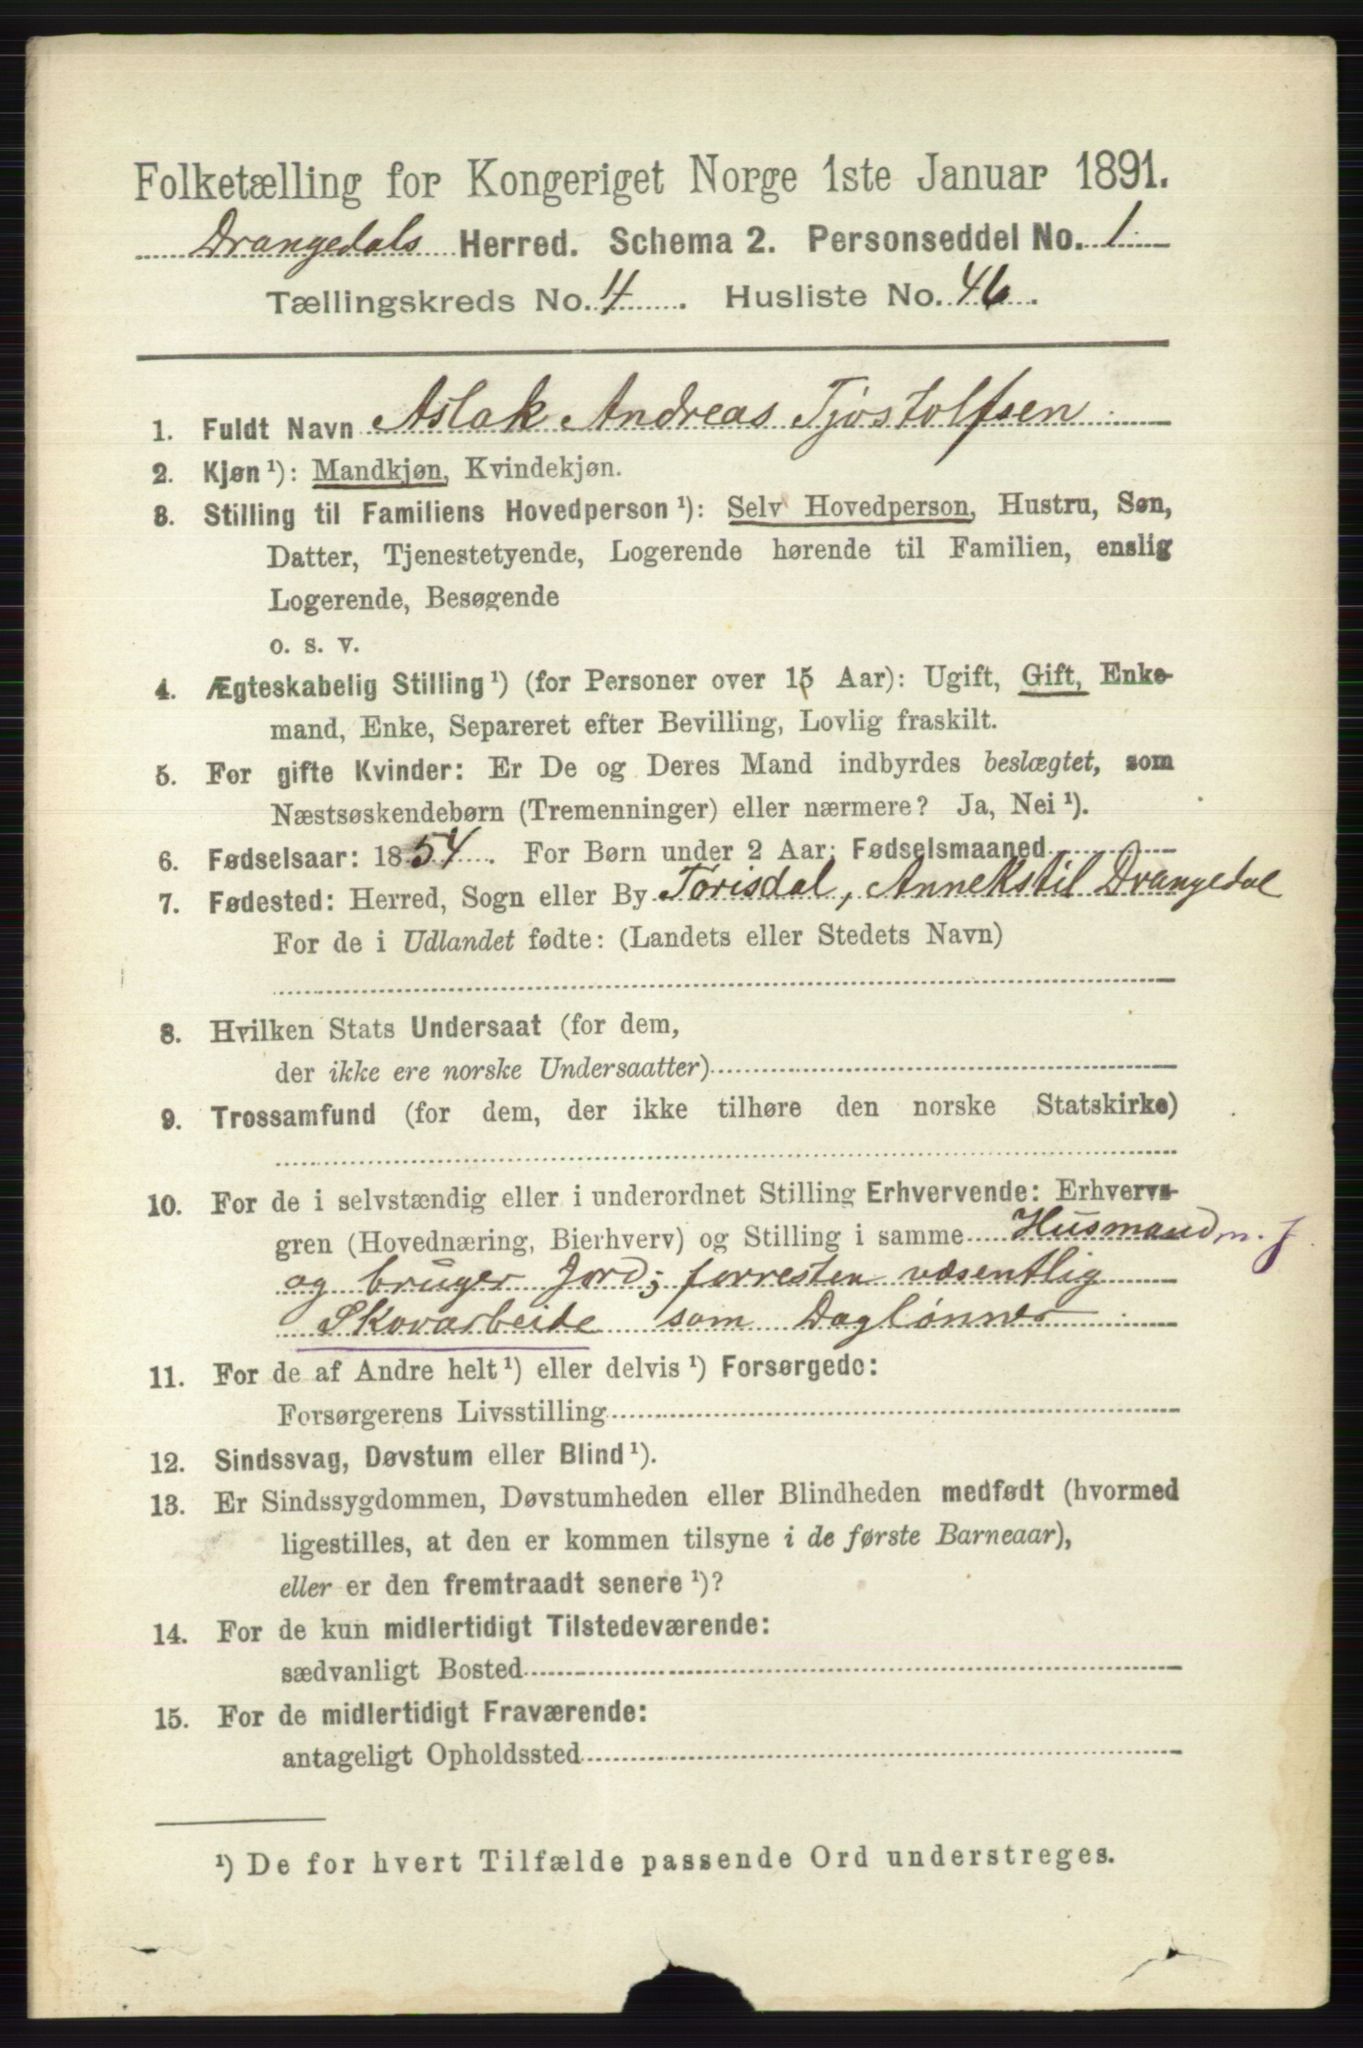 Folketælling for Kongeriget Norge 1ste Januar 1891.
Drangedals Herred. Schema 2. Personseddel No. 1
Tællingskreds No. 4. Husliste No. 46.
1. Fuldt Navn Aslak Andreas Tjøstolfsen.
2. Kjøn ¹): Mandkjøn, Kvindekjøn.
3. Stilling til Familiens Hovedperson ¹): Selv Hovedperson, Hustru, Søn,
Datter, Tjenestetyende, Logerende hørende til Familien, enslig
Logerende, Besøgende
o. s. v.
4. Ægteskabelig Stilling ¹) (for Personer over 15 Aar): Ugift, Gift, Enke-
mand, Enke, Separeret efter Bevilling, Lovlig fraskilt.
5. For gifte Kvinder: Er De og Deres Mand indbyrdes beslægtet, som
Næstsøskendebørn (Tremenninger) eller nærmere? Ja, Nei ¹).
6. Fødselsaar: 1854. For Børn under 2 Aar: Fødselsmaaned
7. Fødested: Herred, Sogn eller By Tørisdal, Annekstil Drangedal
For de i Udlandet fødte: (Landets eller Stedets Navn)
8. Hvilken Stats Undersaat (for dem,
der ikke ere norske Undersaatter)
9. Trossamfund (for dem, der ikke tilhøre den norske Statskirke)
10. For de i selvstændig eller i underordnet Stilling Erhvervende: Erhvervs-
gren (Hovednæring, Bierhverv) og Stilling i samme Husmand m. J
og bruger Jord; forresten væsentlig
Skovarbeide som Daglønner.
11. For de af Andre helt ¹) eller delvis ¹) Forsørgede:
Forsørgerens Livsstilling
12. Sindssvag, Døvstum eller Blind ¹).
13. Er Sindssygdommen, Døvstumheden eller Blindheden medfødt (hvormed
ligestilles, at den er kommen tilsyne i de første Barneaar),
eller er den fremtraadt senere ¹)?
14. For de kun midlertidigt Tilstedeværende:
sædvanligt Bosted
15. For de midlertidigt Fraværende:
antageligt Opholdssted
¹) De for hvert Tilfælde passende Ord understreges.